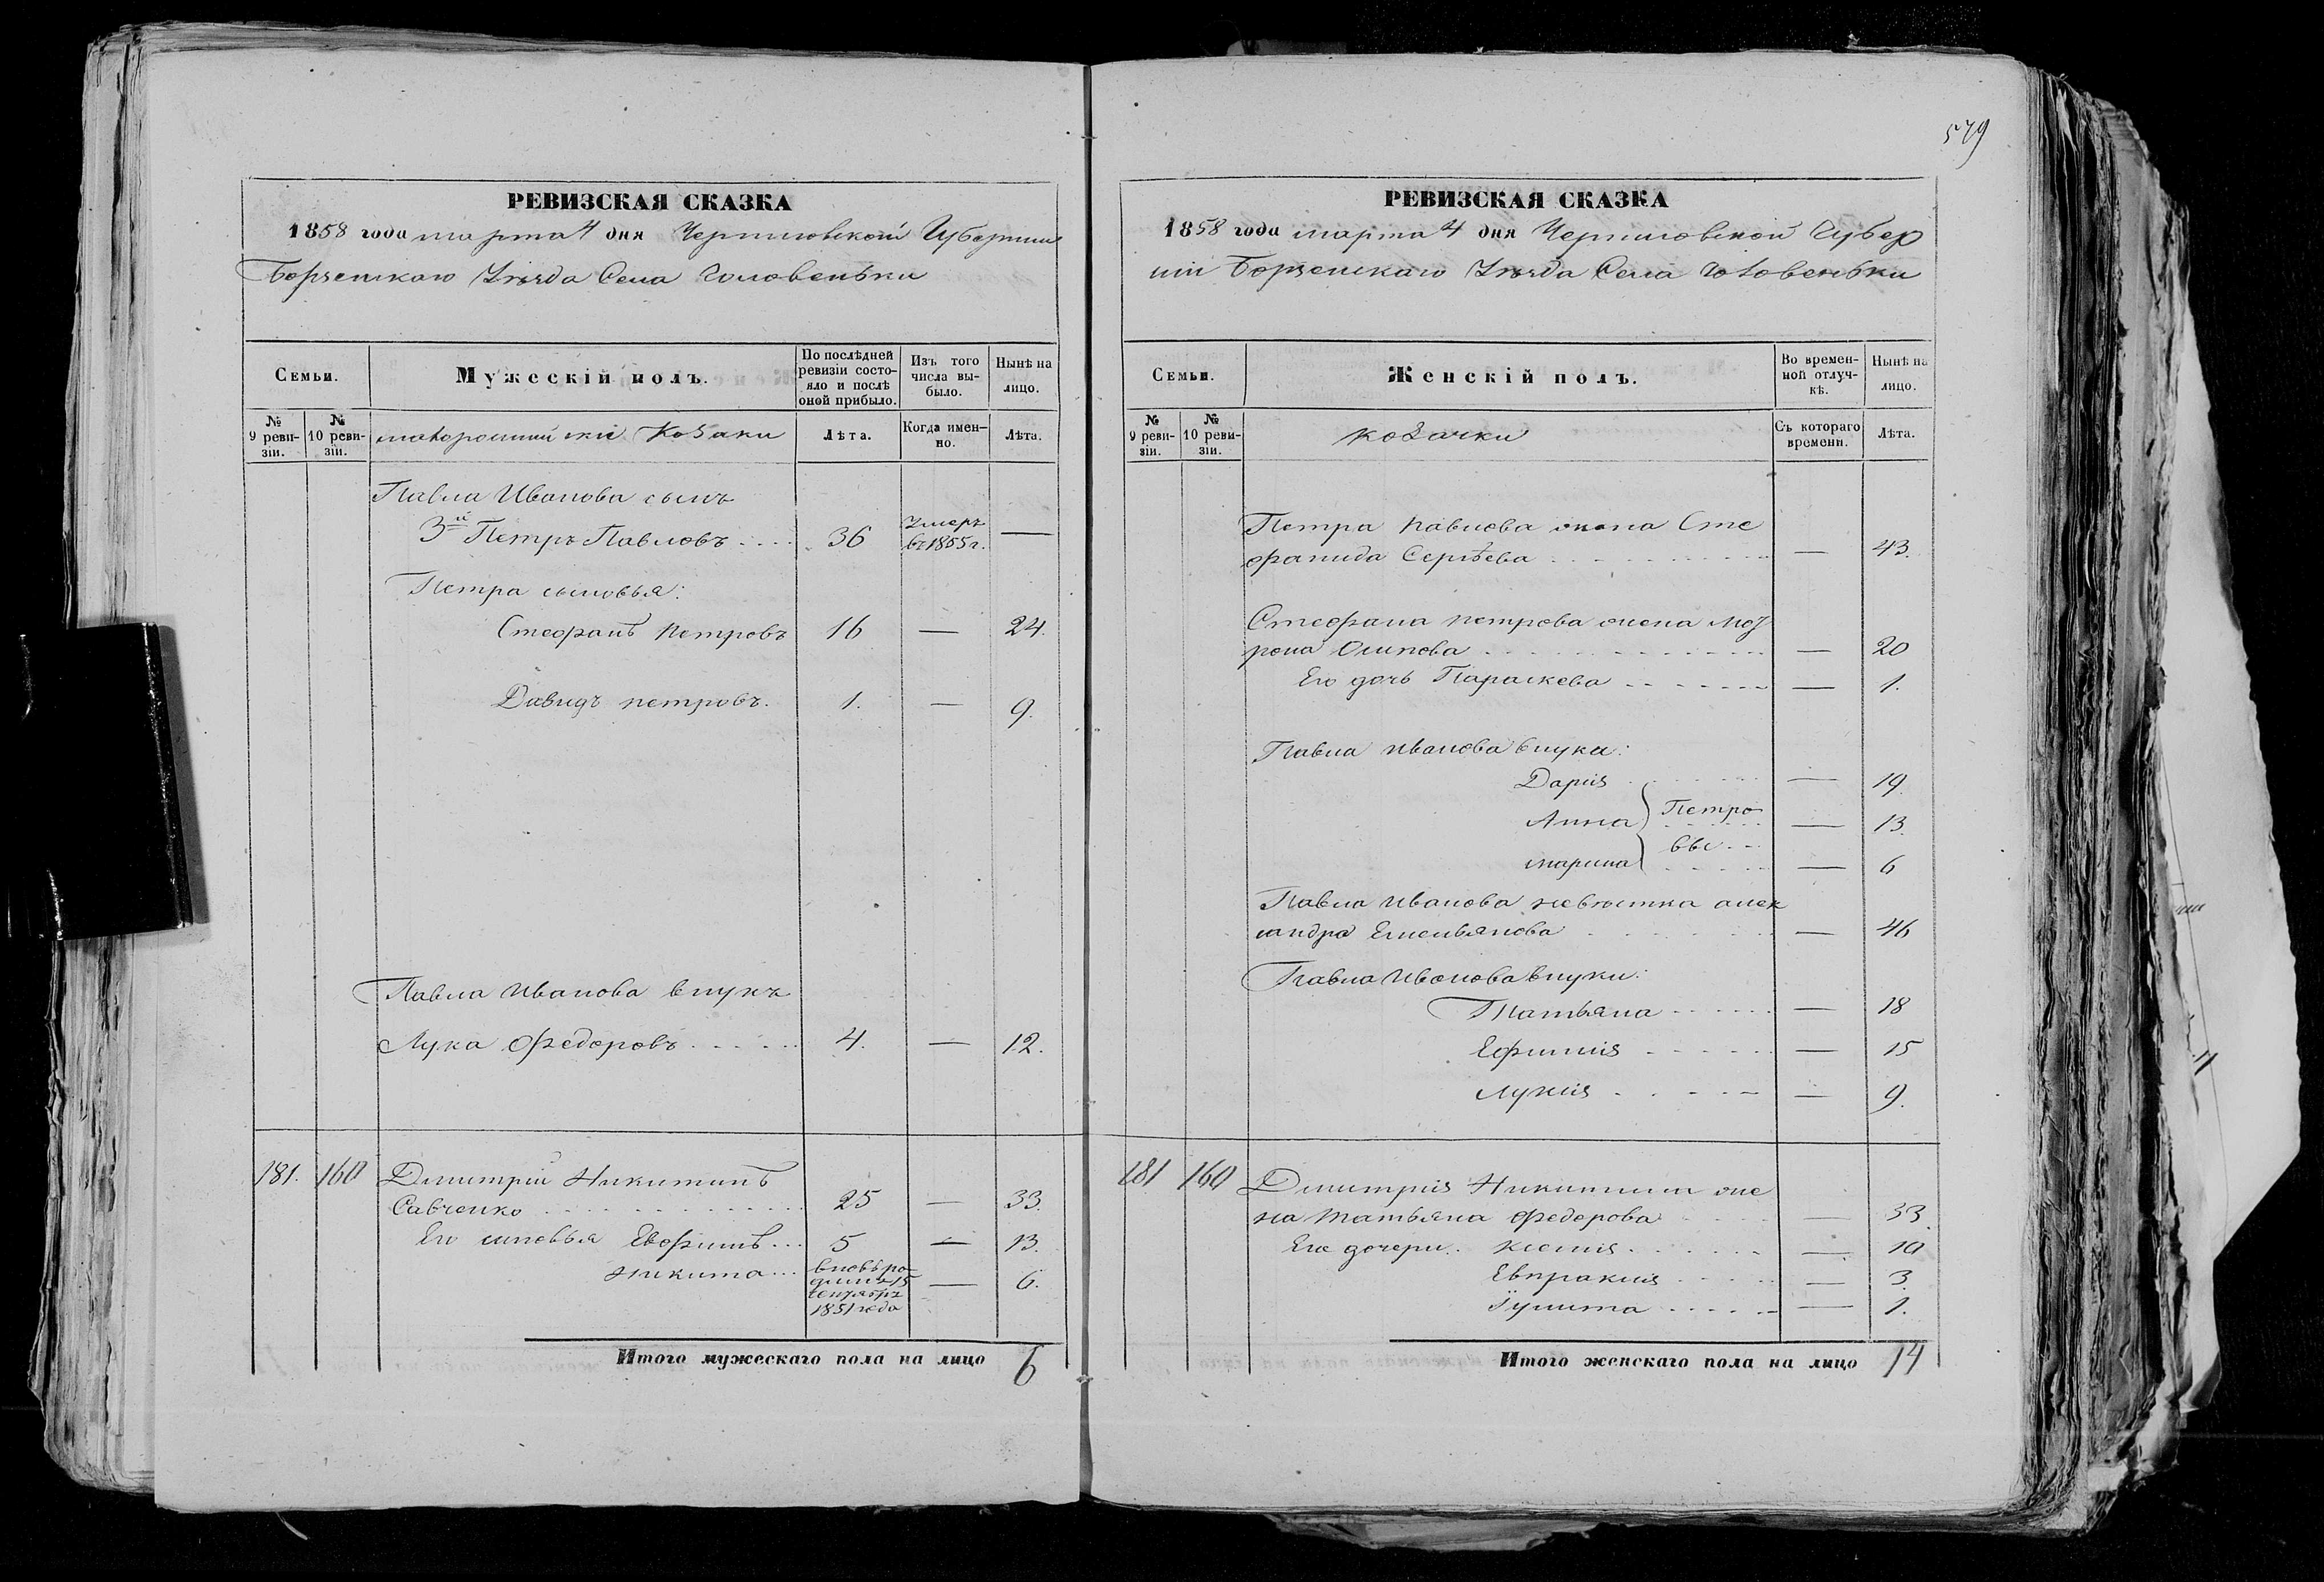 РЕВИЗСКАЯ СКАЗКА
1858 года марта 4 дня Черниговской Губернии
Борзенскаго Уѣзда Села Головеньки
Семьи.
Мужескій полъ.
По послѣдней ревизіи состояло и послѣ оной прибыло.
Изъ того числа выбыло.
Нынѣ на лицо.
№ 9 ревизіи.
№ 10 ревизіи.
малороссійскіе Козаки
Лѣта.
Когда именно.
Лѣта.
Павла Иванова сынъ
3й Петръ Павловъ .... 36 умеръ въ 1855 г. —
Петра сыновья:
Стефанъ Петровъ 16 — 24.
Давидъ Петровъ. 1. — 9.
Павла Иванова внукъ
Лука Федоровъ ...... 4. — 12.
181. 160 Дмитрій Никитинъ
Савченко ............ 25 — 33.
Его сыновья Евфимъ... 5 — 13.
Никита... вновь родился 15 сентября 1851 года — 6.
Итого мужескаго пола на лицо 6
579
РЕВИЗСКАЯ СКАЗКА
1858 года марта 4 дня Черниговской Губер
ніи Борзенскаго Уѣзда Села Головеньки
Семьи.
Женскій полъ.
Во временной отлучкѣ.
Нынѣ на лицо.
№ 9 ревизіи.
№ 10 ревизіи.
козачки
Съ котораго времени.
Лѣта.
Петра Павлова жена Сте
фанида Сергѣева ......... — 43.
Стефана Петрова жена Мот
рона Осипова ............ — 20
Его дочь Параскева ....... — 1.
Павла Иванова внуки:
Дарія ....... — 19.
Анна } Петро — 13.
вы...
Марина ..... — 6
Павла Иванова невѣстка Алек
сандра Емельянова ....... — 46
Павла Иванова внуки:
Татьяна ...... — 18
Ефимія ...... — 15
Лукія ...... — 9.
181 160 Дмитрія Никитина же
на Татьяна Федорова ..... — 33.
Его дочери: Ксенія ...... — 10
Евпраксія ..... — 3
Іулита ...... — 1.
Итого женскаго пола на лицо 14